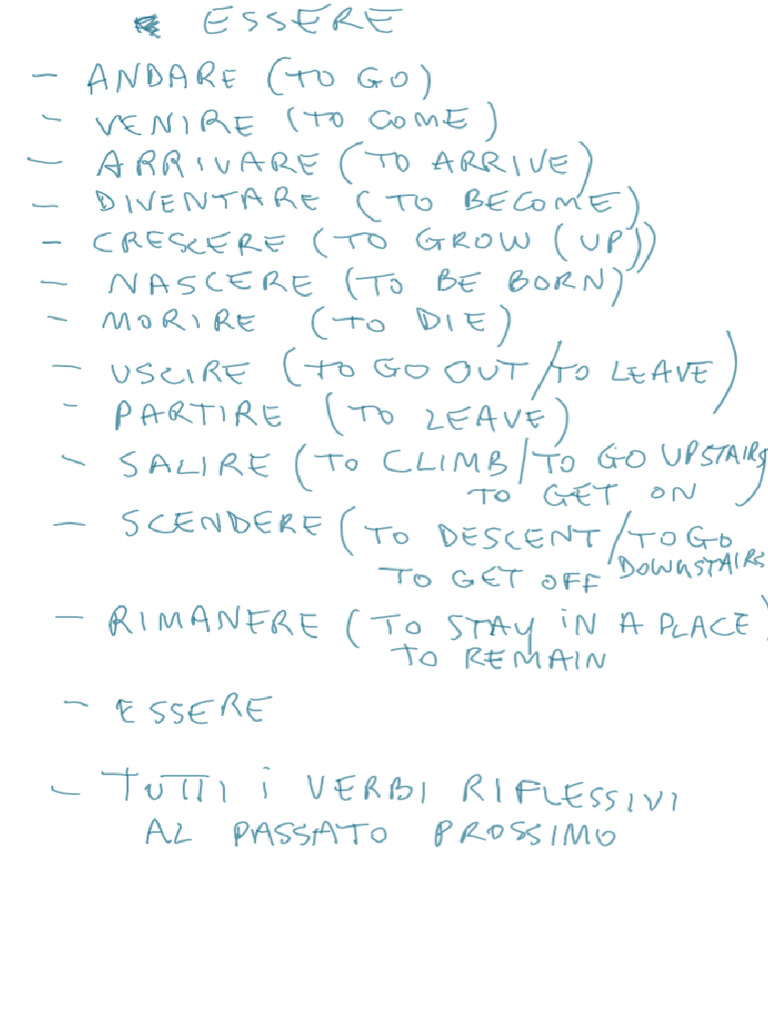 ESSERE
- ANDARE (TO GO)
- VENIRE (TO COME)
- ARRIVARE (TO ARRIVE)
- DIVENTARE (TO BECOME)
- CRESCERE (TO GROW (UP))
- NASCERE (TO BE BORN)
- MORIRE (TO DIE)
- USCIRE (TO GO OUT/TO LEAVE)
- PARTIRE (TO LEAVE)
- SALIRE (TO CLIMB/TO GO UPSTAIRS
TO GET ON )
- SCENDERE (TO DESCENT/TO GO
TO GET OFF DOWNSTAIRS
- RIMANERE (TO STAY IN A PLACE)
TO REMAIN
- ESSERE
- TUTTI i VERBI RIFLESSIVI
AL PASSATO PROSSIMO